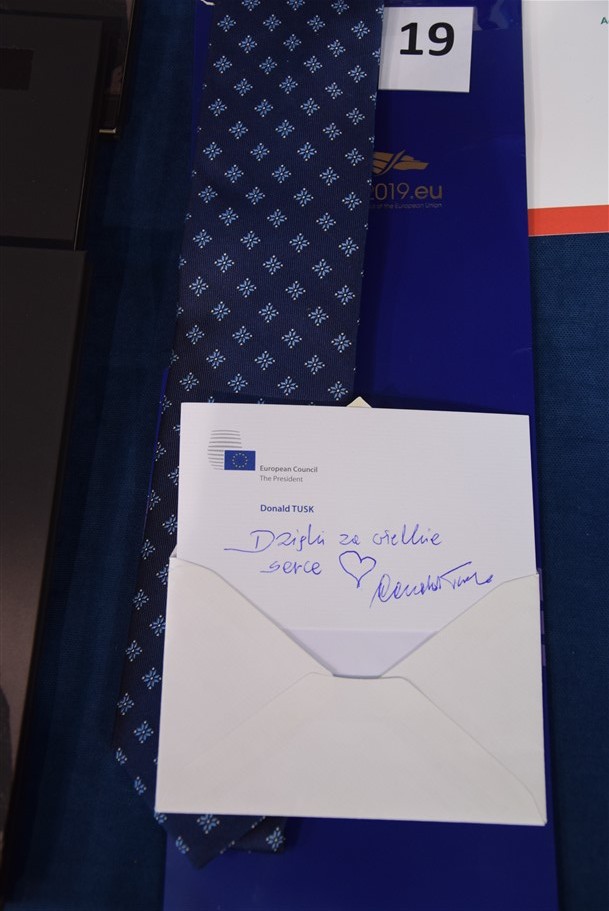 19
2019.eu
of the European Union
European Council
The President
Donald TUSK
Dzięki za wielkie
serce
Donald Tusk